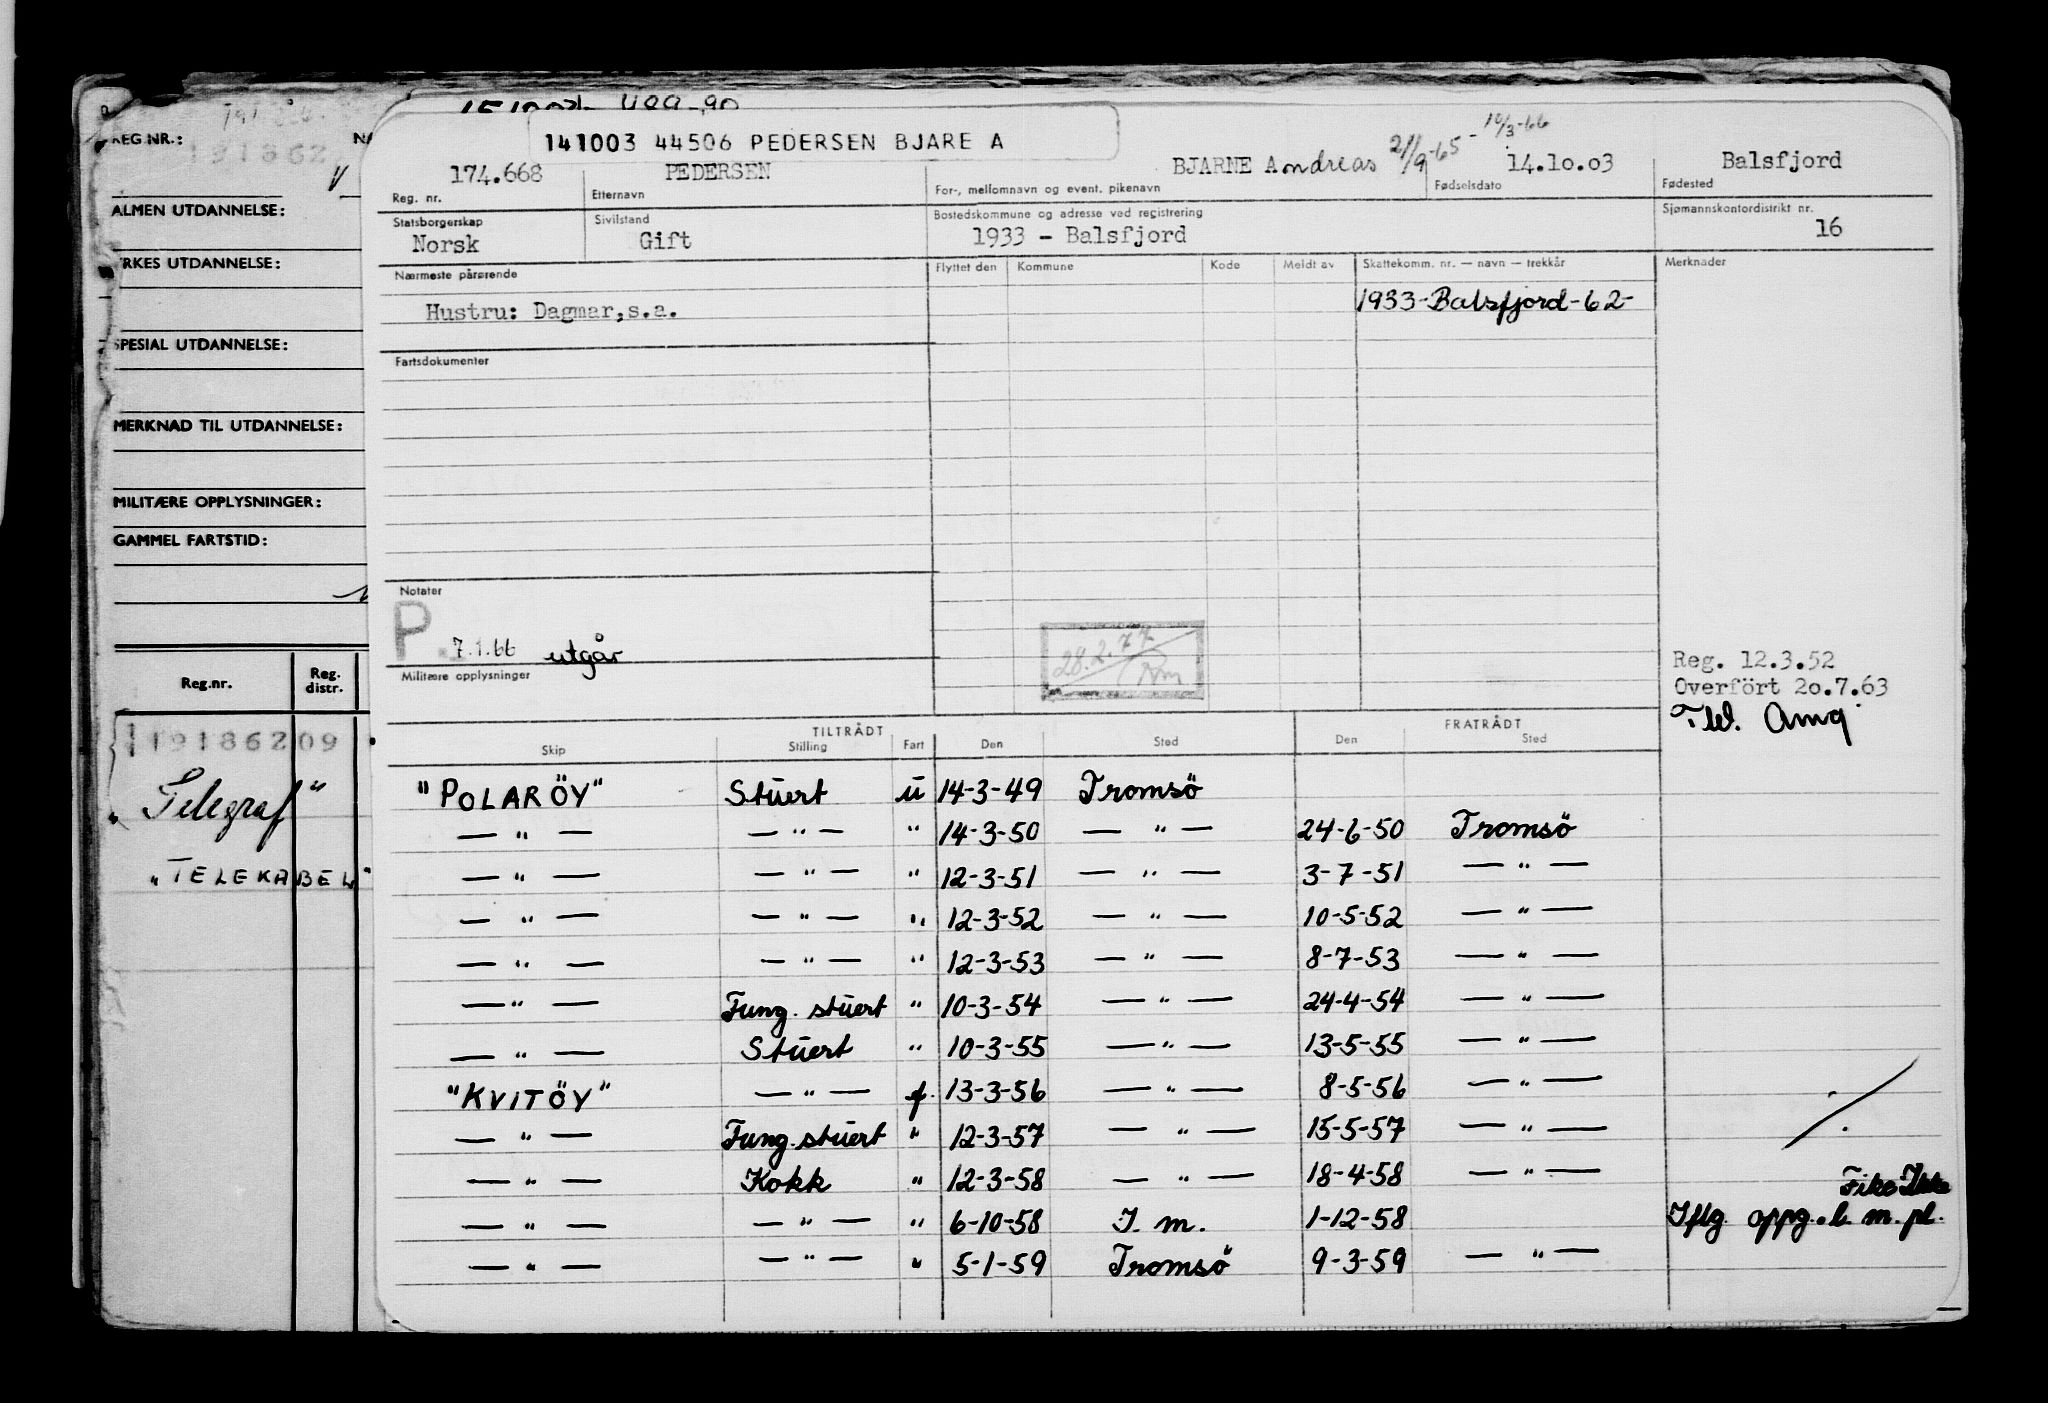 REG NR.:
191862
ALMEN UTDANNELSE:
YRKES UTDANNELSE:
SPESIAL UTDANNELSE:
MERKNAD TIL UTDANNELSE:
MILITÆRE OPPLYSNINGER:
GAMMEL FARTSTID:
Reg.nr. Reg. distr.
19186209
"Telegraf"
"TELEKABEL"
141003 44506 PEDERSEN BJARE A
174.668 PEDERSEN BJARNE Andreas 21/9-65 - 10/3-66 14.10.03 Balsfjord
Reg. nr. Etternavn For-, mellomnavn og event. pikenavn Fødselsdato Fødested
Statsborgerskap Sivilstand Bostedskommune og adresse ved registrering Sjømannskontordistrikt nr.
Norsk Gift 1933 - Balsfjord 16
Nærmeste pårørende Flyttet den Kommune Kode Meldt av Skattekomm. nr. — navn — trekkår Merknader
Hustru: Dagmar,s.a. 1933-Balsfjord-62-
Fartsdokumenter
Notater
P. 7.1.66 utgår
28.2.77
Militære opplysninger
Reg. 12.3.52
Overfört 20.7.63
TILTRÅDT FRATRÅDT
Skip Stilling Fart Den Sted Den Sted
"POLARÖY" Stuert u 14-3-49 Tromsö
— " — — " — " 14-3-50 — " — 24-6-50 Tromsö
— " — — " — " 12-3-51 — " — 3-7-51 — " —
— " — — " — " 12-3-52 — " — 10-5-52 — " —
— " — — " — " 12-3-53 — " — 8-7-53 — " —
— " — Fung. stuert " 10-3-54 — " — 24-4-54 — " —
— " — Stuert " 10-3-55 — " — 13-5-55 — " —
"KVITÖY" — " — f. 13-3-56 — " — 8-5-56 — " —
— " — Fung. stuert " 12-3-57 — " — 15-5-57 — " —
— " — Kokk " 12-3-58 — " — 18-4-58 — " —
— " — — " — " 6-10-58 I. m. 1-12-58 Iflg. oppg. m. pl.
— " — — " — " 5-1-59 Tromsö 9-3-59 — " —